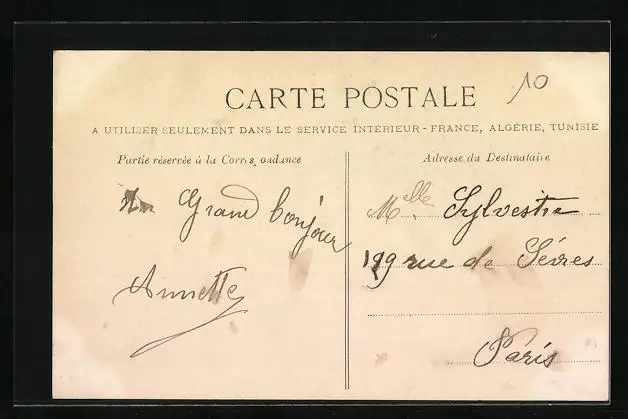 10
CARTE POSTALE
A UTILISER SEULEMENT DANS LE SERVICE INTÉRIEUR - FRANCE, ALGÉRIE, TUNISIE
Partie réservée à la Corres ondance
Adresse du Destinataire
Un Grand bonjour
Annette
Melle Sylvestre
199 rue de Sévres
Paris